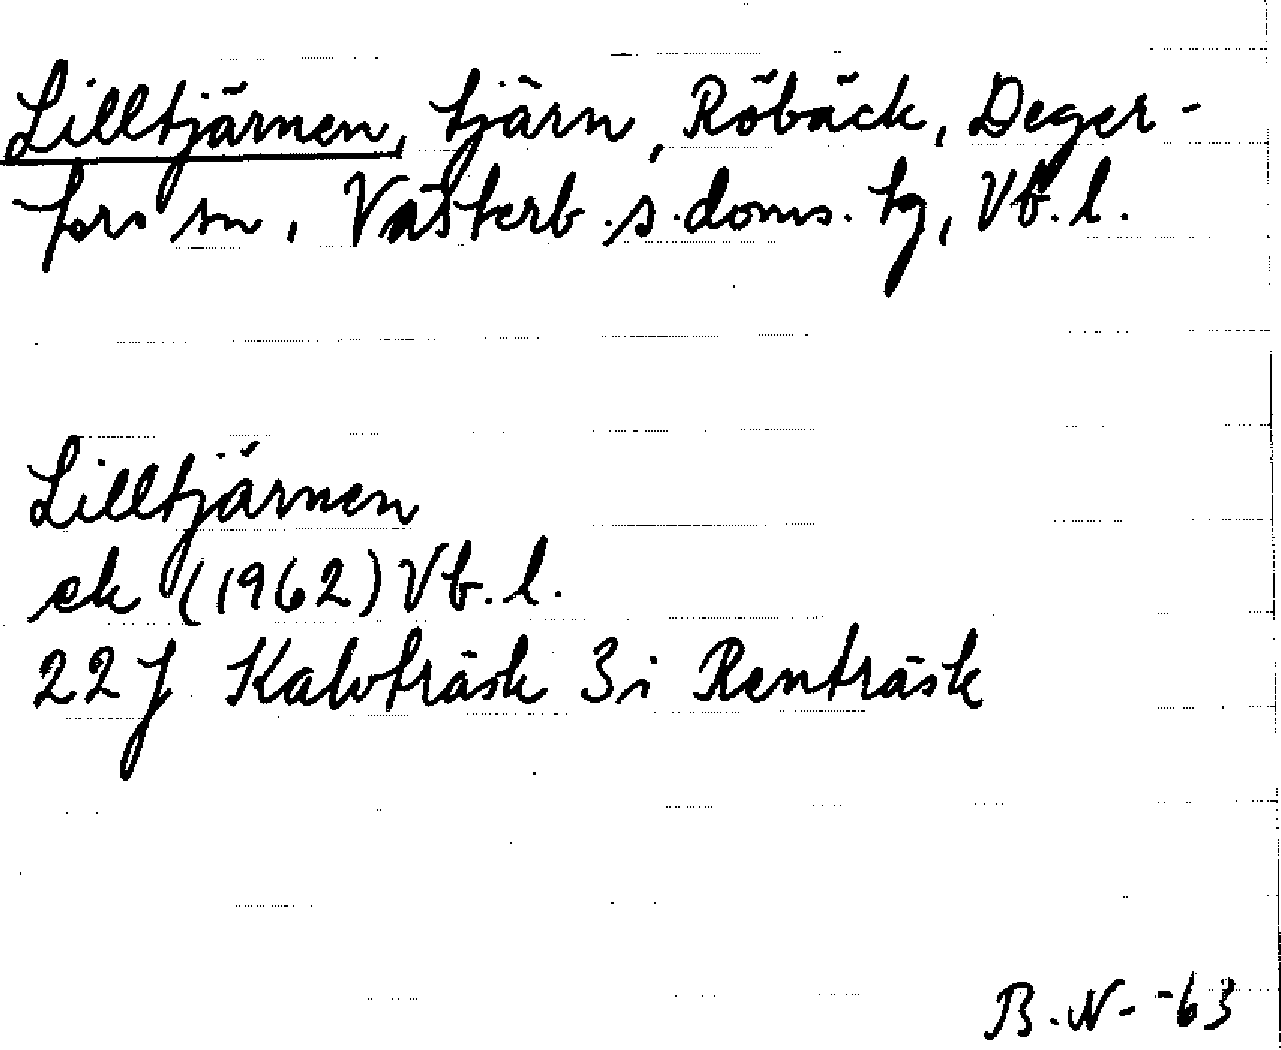 Lilltjärnen, tjärn, Röbäck, Deger-
fors sn, Västerb. s. doms. tg, Vb. l.
Lilltjärnen
ek (1962) Vb. l.
22J Kalvträsk 3i Renträsk
B. N- -63